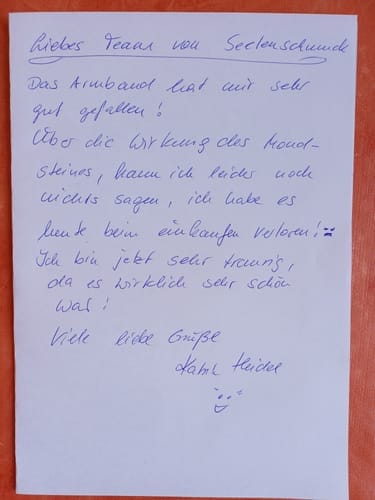 Liebes Team von Seelenschmuck
Das Armband hat mir sehr
gut gefallen!
Über die Wirkung des Mond-
steines, kann ich leider noch
nichts sagen, ich habe es
heute beim einkaufen verloren!
Ich bin jetzt sehr traurig,
da es wirklich sehr schön
war!
Viele liebe Grüße